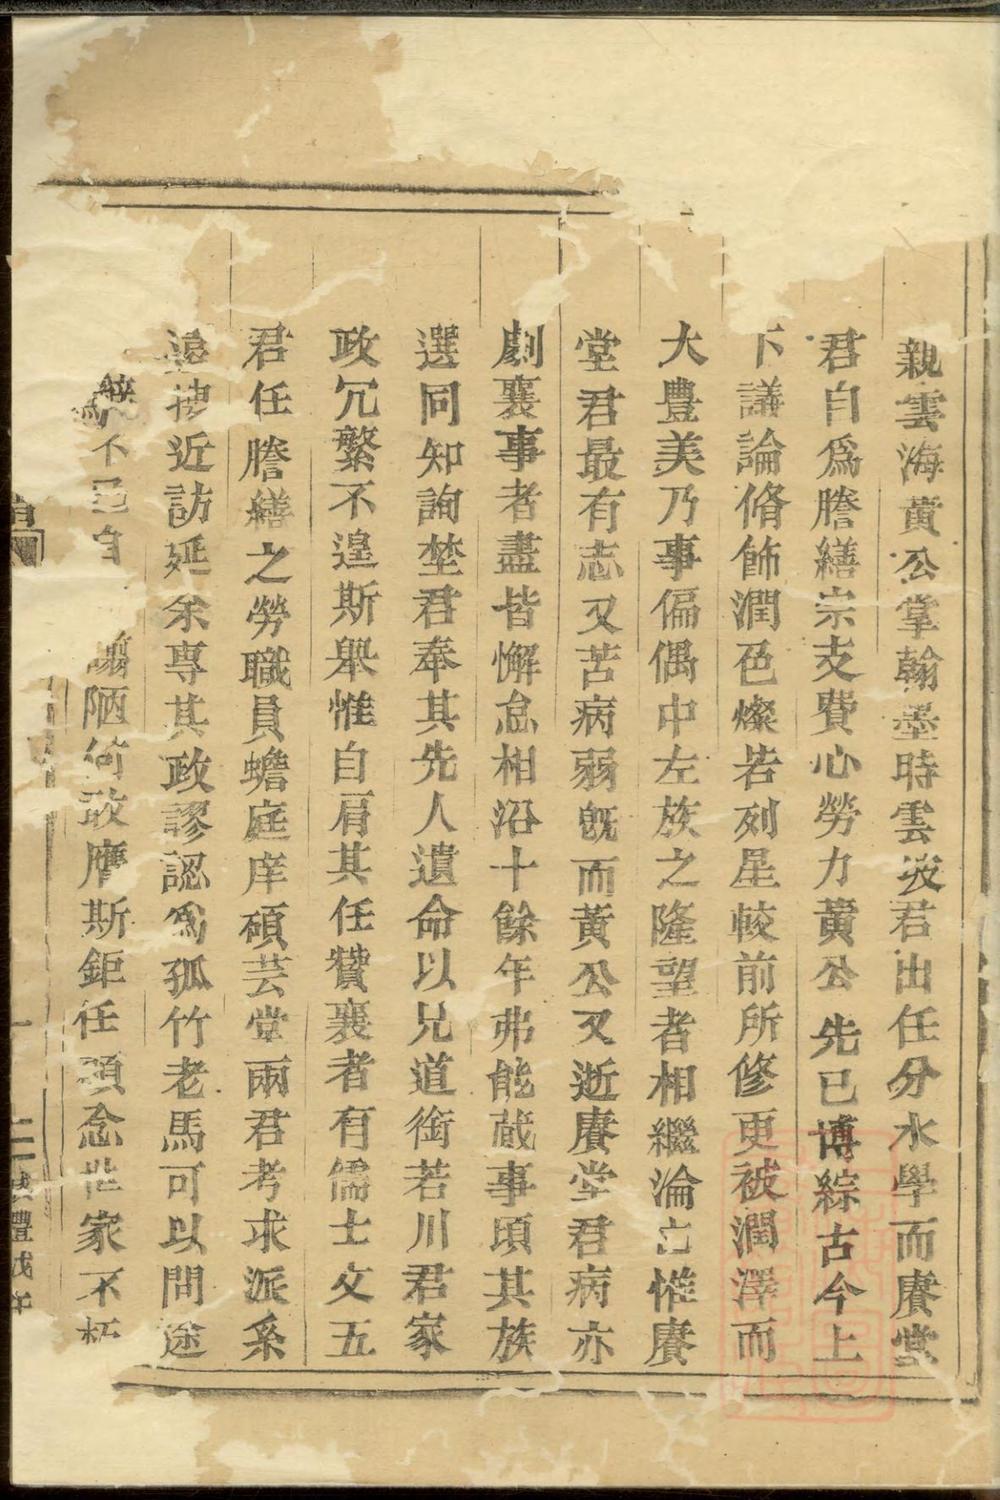 親雲海黃公掌翰墨時雲波君出任分水學而賡堂
君自爲謄繕宗支費心勞力黃公先已博綜古今上
下議論脩飾潤色燦若列星較前所修更被潤澤而
大豊美乃事偏偶中左族之隆望者相繼淪亡惟賡
堂君最有志又苦病弱旣而黃公又逝賡堂君病亦
劇襄事者盡皆懈怠相沿十餘年弗能蕆事頃其族
選同知詢埜君奉其先人遺命以兄道銜若川君家
政冗繁不遑斯舉惟自肩其任贊襄者有儒士文五
君任謄繕之勞職員蟾庭庠碩芸堂兩君考求派系
遠搜近訪延余專其政謬認爲孤竹老馬可以問途
不已自 陋何敢膺斯鉅任須念世家不朽
一 二 咸豐戊午